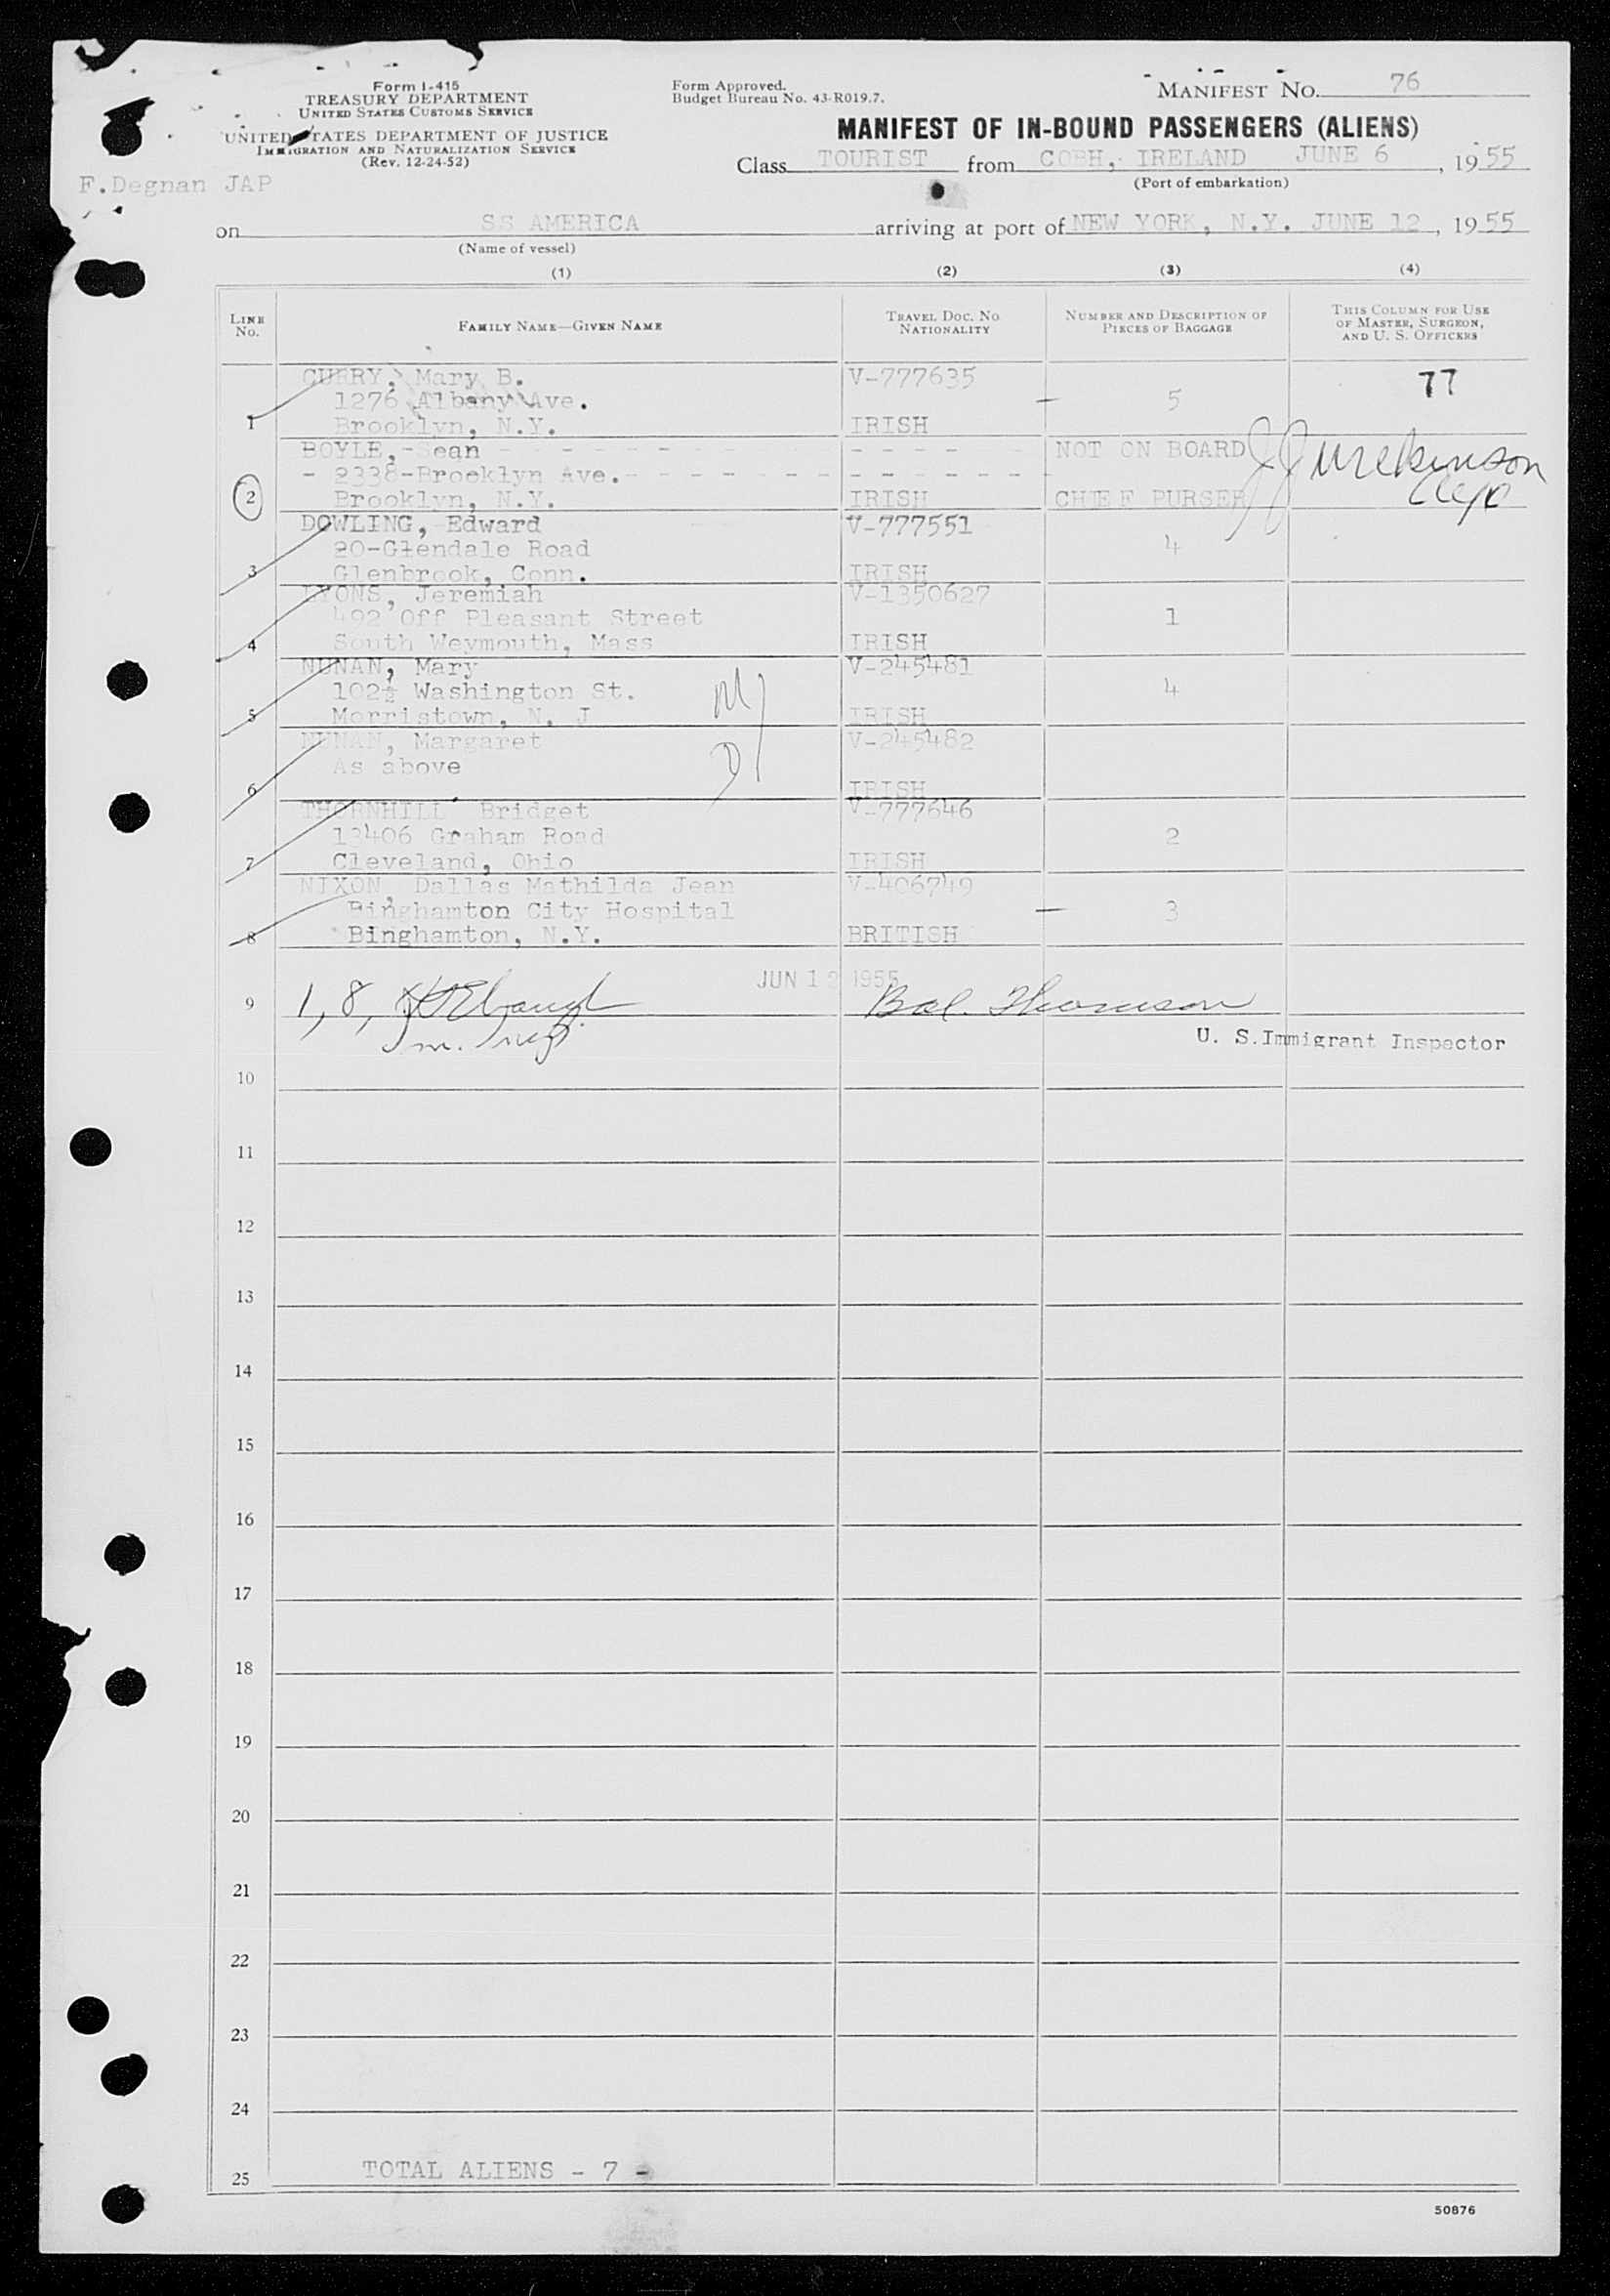 Form I-415
TREASURY DEPARTMENT
UNITED STATES CUSTOMS SERVICE
UNITED STATES DEPARTMENT OF JUSTICE
IMMIGRATION AND NATURALIZATION SERVICE
(Rev. 12-24-52)
F.Degnan JAP
Form Approved.
Budget Bureau No. 43-R019.7.
MANIFEST No. 76
MANIFEST OF IN-BOUND PASSENGERS (ALIENS)
Class TOURIST from COBH, IRELAND JUNE 6, 1955
(Port of embarkation)
on SS AMERICA arriving at port of NEW YORK, N.Y. JUNE 12, 1955
(Name of vessel)
(1) (2) (3) (4)
LINE No. FAMILY NAME—GIVEN NAME TRAVEL DOC. NO. NATIONALITY NUMBER AND DESCRIPTION OF PIECES OF BAGGAGE THIS COLUMN FOR USE OF MASTER, SURGEON, AND U. S. OFFICERS
CURRY, Mary B. V-777635 77
1276 Albany Ave. — 5
1 Brooklyn, N.Y. IRISH
BOYLE,-Sean - - - - - - - - - - - - NOT ON BOARD
- 2338-Brooklyn Ave.- - - - - - - - - - - -
2 Brooklyn, N.Y. IRISH CHIEF PURSER
DOWLING, Edward V-777551
20-Glendale Road 4
3 Glenbrook, Conn. IRISH
LYONS, Jeremiah V-1350627
492 Off Pleasant Street 1
4 South Weymouth, Mass IRISH
NUNAN, Mary V-245481
102½ Washington St. 4
5 Morristown, N. J IRISH
NUNAN, Margaret V-245482
As above
6 IRISH
THORNHILL Bridget V-777646
13406 Graham Road 2
7 Cleveland, Ohio IRISH
NIXON, Dallas Mathilda Jean V-406749
Binghamton City Hospital — 3
8 Binghamton, N.Y. BRITISH
JUN 12 1955
9 1, 8, Thomson
Im. Insp.
U. S.Immigrant Inspector
10
11
12
13
14
15
16
17
18
19
20
21
22
23
24
25 TOTAL ALIENS - 7 -
50876